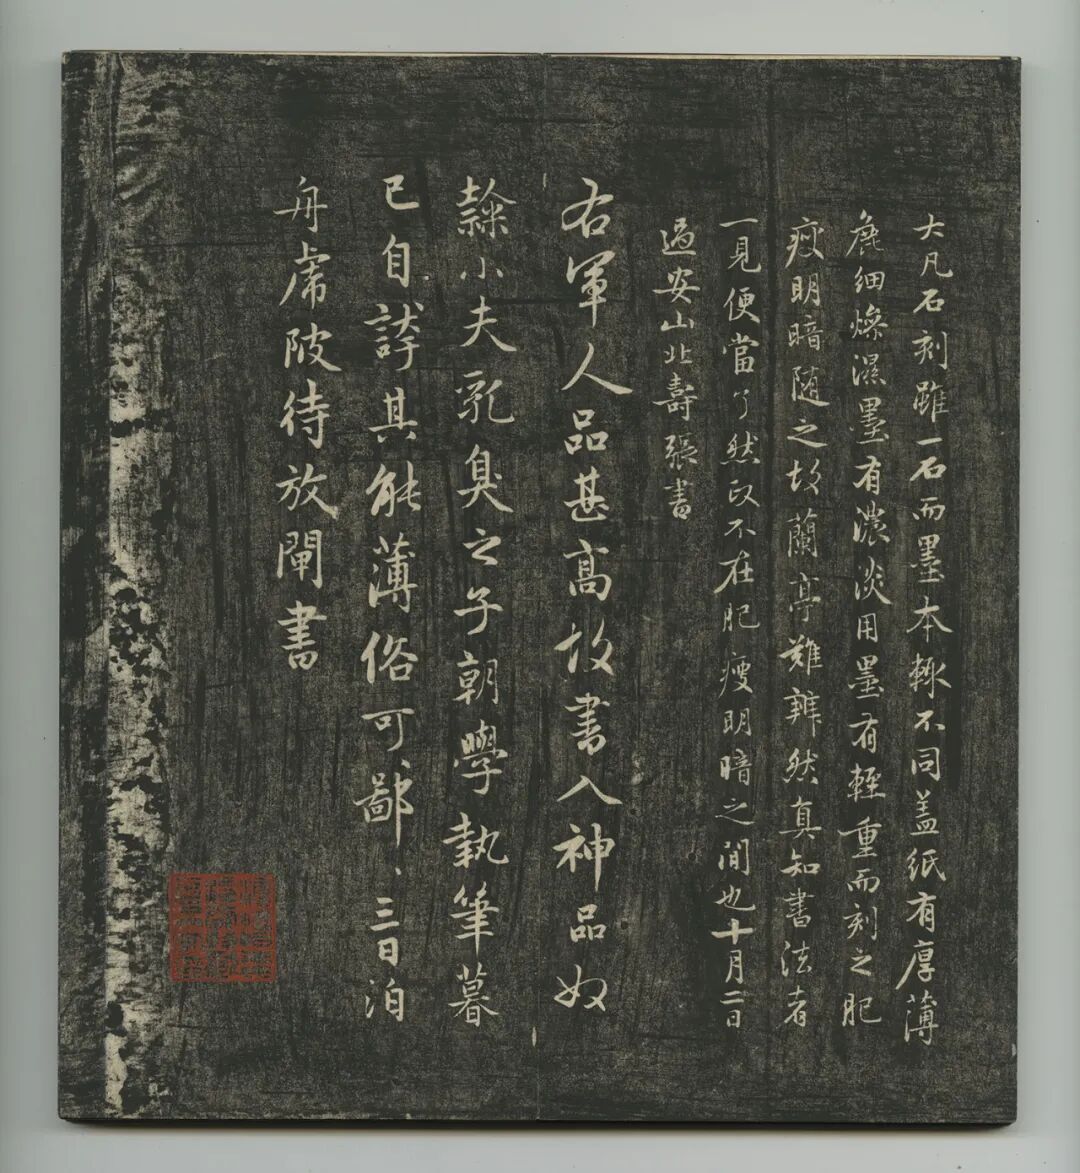 大凡石刻雖一石而墨本輒不同盖紙有厚薄
麁細燥濕墨有濃淡用墨有輕重而刻之肥
瘦明暗随之故蘭亭難辨然真知書法者
一見便當了然政不在肥瘦明暗之間也十月二日
過安山北壽張書
右軍人品甚高故書入神品奴
隷小夫乳臭之子朝學執筆暮
已自誇其能薄俗可鄙〻三日泊
舟虎陂待放閘書